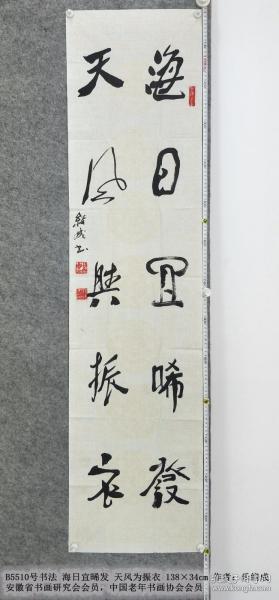 海日宜晞發
天風與振衣
紹成书
B5510号书法 海日宜晞发 天风为振衣 138×34cm 作者：绍成
安徽省书画研究会会员，中国老年书画协会会员